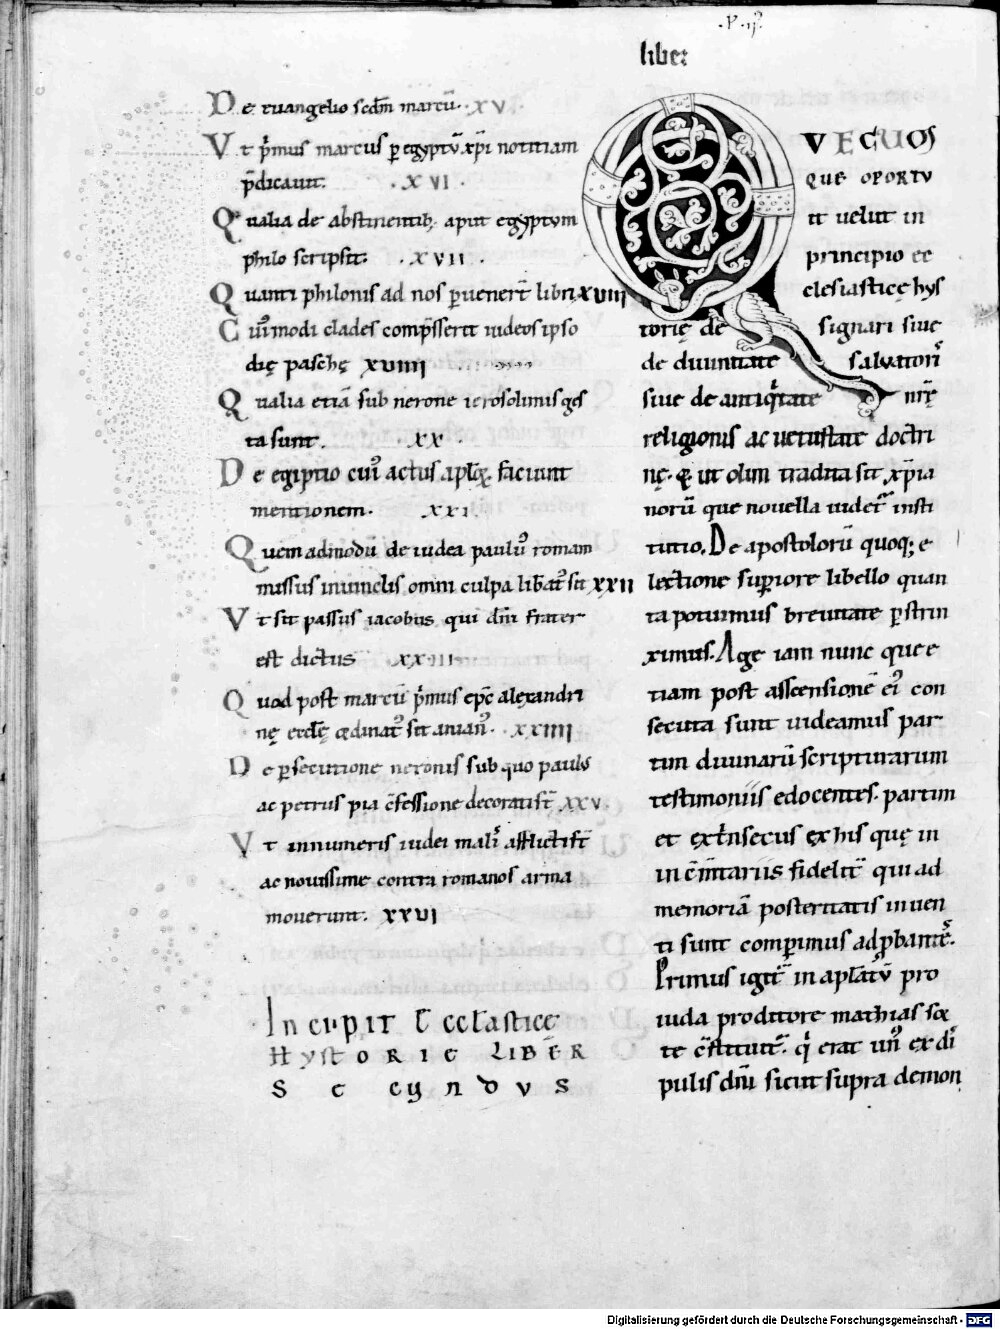 ·P· ij
liber
De euangelio scdm̄ marcū· ·XV·
Vt p̄mus marcus p̱ egyptū xp̄i notitiam
p̄dicauit: ·XVI·
Qualia de abstinentib; aput egyptvm
philo scripsit: ·XVII·
Quanti philonis ad nos p̱uener̄t libri XVIII
Cuiꝰmodi clades comp̄sserit iudeos ipso
dię paschę XVIIII
Qualia etiā sub nerone ierosolimis ges
ta sunt ·XX·
De egiptio cuiꝰ actus apl̄oꝝ faciunt
mentionem· XXI
Quem admodū de iudea pauluꝰ romam
missus inuinclis omni culpa liƀatꝰ sit XXII
Vt sit passus iacobus qui dn̄i frater
est dictus XXIII
Quod post marcū p̄mus ep̄c alęxandri
nę eccl̄ę ordinatꝰ sit anianꝰ· XXIIII
De p̱secutione neronis sub quo pauls
ac petrus pia c̄fessione decorati st̄ XXV·
Vt innumeris iudei malis afflicti st̄
ac nouissime contra romanos arma
mouerunt· XXVI
Incipit Ecclasticę
Hystorię Liber
Secundvs
QVECUOS
QUE OPORTV
it uelut in
principio ec
clesiasticę hys
torię de signari siue
de diuinitate salvatoris
siue de antiq̓tate nr̄ę
religionis ac uetustate doctri
nę· & ut olim tradita sit xp̄ia
norū que nouella uidet̄ insti
tutio. De apostolorū quoq; e
lectione sup̱iore libello quan
ta potuimus breuitate p̱strin
ximus. Age iam nunc que e
tiam post asscensionē eiꝰ con
secuta sunt uideamus par
tim diuinarū scripturarum
testimoniis edocentes· partim
et ext̄nsecus ex his quę in
in c̄m̄tariis fidelit̄ qui ad
memoriā posteritatis inuen
ti sunt comp̱imus adp̱bante.
Primus igit̄ in apl̄atū pro
iuda proditore mathias sor
te c̄stituit̄· q̓ erat unꝰ ex di
pulis dn̄i sicut supra demon
Digitalisierung gefördert durch die Deutsche Forschungsgemeinschaft - DFG